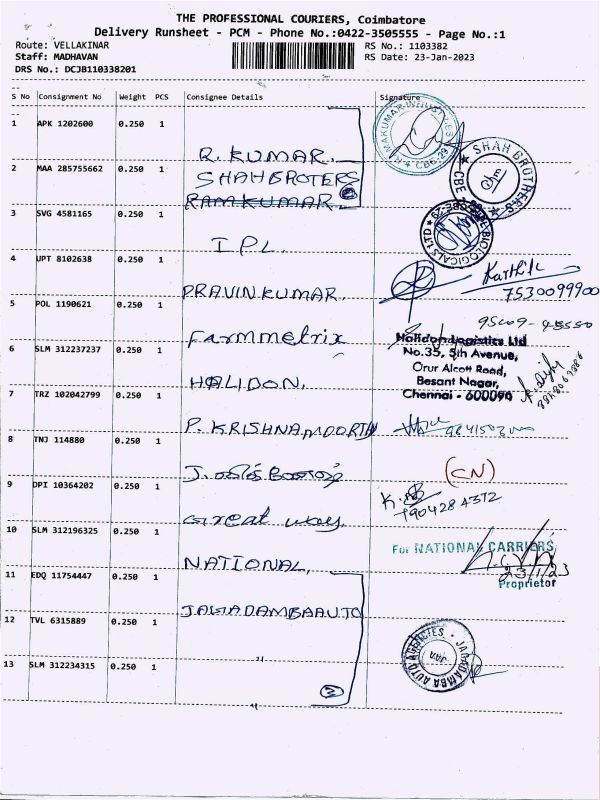 THE PROFESSIONAL COURIERS, Coimbatore
Delivery Runsheet - PCM - Phone No.:0422-3505555 - Page No.:1
Route: VELLAKINAR
RS No.: 1103382
Staff: MADHAVAN
RS Date: 23-Jan-2023
DRS No.: DCJB110338201
S No Consignment No Weight PCS Consignee Details Signature
1 APK 1202600 0.250 1
R. KUMAR.
2 MAA 285755662 0.250 1
SHAH BROTERS
RAMKUMAR
3 SVG 4581165 0.250 1
IPL.
4 UPT 8102638 0.250 1
PRAVIN KUMAR.
Karthik
7530099900
5 POL 1190621 0.250 1
Farmmetrix
6 SLM 312237237 0.250 1
Halidon Logistics Ltd
No.35, 5th Avenue,
Orur Alcott Road,
Besant Nagar,
Chennai - 600090
HALIDON.
7 TRZ 102042799 0.250 1
P. KRISHNAMOORTHY
8 TNJ 114880 0.250 1
(CN)
9 DPI 10364202 0.250 1
7904284372
Great ways
10 SLM 312196325 0.250 1
For NATIONAL CARRIERS
23/1/23
Proprietor
NATIONAL.
11 EDQ 11754447 0.250 1
JAGADAMBA AUTO
12 TVL 6315889 0.250 1
JAGADAMBA AUTO AGENCIES
13 SLM 312234315 0.250 1
2